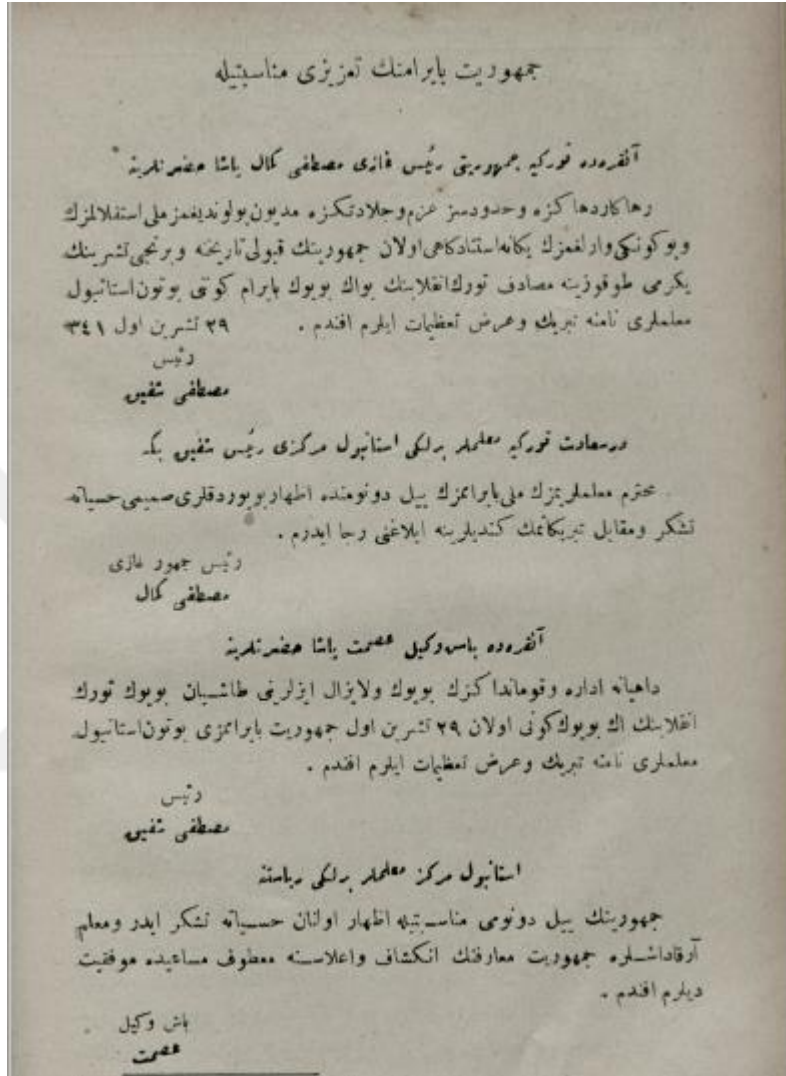 جمهوريت بايرامنك تعزيزى مناسبتيله
آنقره‌ده توركيه جمهوريتى رئيس غازى مصطفى كمال پاشا حضرتلرينه
رهاكاردهاكزه وحدودسز عزم وجلادتكزه مديون بولونديغمز ملى استقلالمزك
وبوكونكى وارلغمزك يكانه استنادكاهى اولان جمهوريتك قبولى تاريخنه وبرنجى تشرينك
يكرمى طوقوزينه مصادف تورك انقلابنك بواك بويوك بايرام كونى بوتون استانبول
معلملرى نامنه تبريك وعرض تعظيمات ايلرم افندم . ٢٩ تشرين اول ٣٤١
رئيس
مصطفى شفيق
درسعادت توركيه معلملر برلكى استانبول مركزى رئيس شفيق بكه
محترم معلملريمزك ملى بايرامزك ييل دونومنده اظهار بويوردقلرى صميمى حسياته
تشكر ومقابل تبريكاتمك كنديلرينه ابلاغنى رجا ايدرم .
رئيس جمهور غازى
مصطفى كمال
آنقره‌ده باش وكيل عصمت پاشا حضرتلرينه
داهيانه اداره وقومانداكزك بويوك ولايزال ايزلرينى طاشيان بويوك تورك
انقلابنك اك بويوك كونى اولان ٢٩ تشرين اول جمهوريت بايرامزى بوتون استانبول
معلملرى نامنه تبريك وعرض تعظيمات ايلرم افندم .
رئيس
مصطفى شفيق
استانبول مركز معلملر برلكى رياستنه
جمهوريتك ييل دونومى مناسبتيله اظهار اولنان حسياته تشكر ايدر ومعلم
آرقاداشلره جمهوريت معارفنك انكشاف واعلاسنه معطوف مساعيده موفقيت
ديلرم افندم .
باش وكيل
عصمت